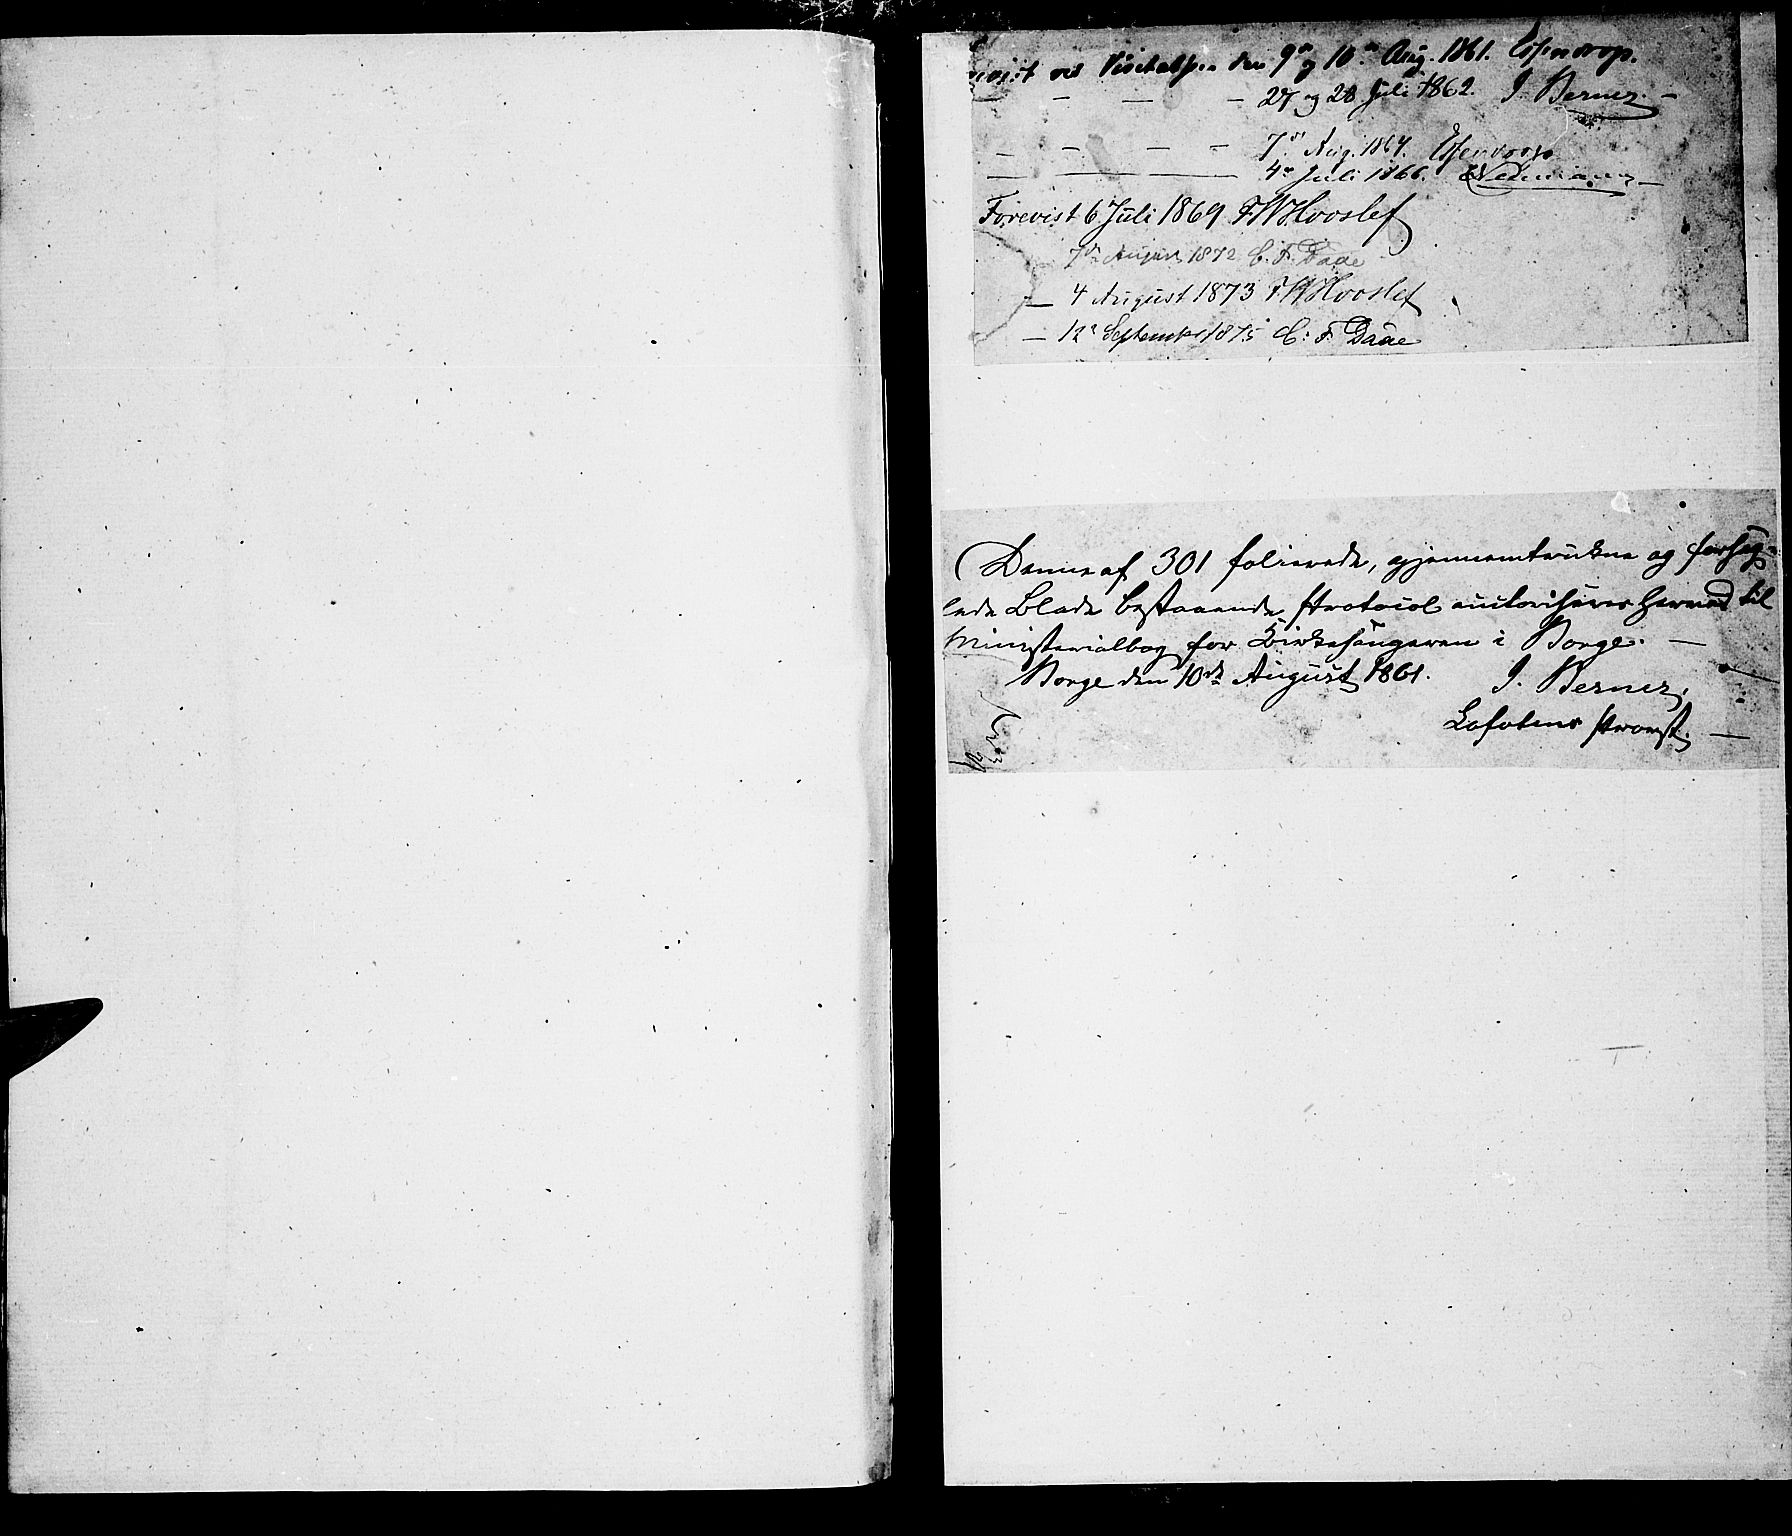 evist ved Visitatsen den 9de og 10de Aug. 1861. Essendrop.
— — — — 27 og 28 Juli 1862. J. Berner. —
— — — — 7de Aug. 1864. Essendrop
— — — 4de Juli 1866.
Forevist 6 Juli 1869 F W Hvoslef
7de August 1872 C. F. Daae
— 4 August 1873 F W Hvoslef
— 12te September 1875 C. F. Daae
Denne af 301 folierede, gjennemtrukne og forseg-
lede Blade bestaaende Protocol autoriseres herved til
Ministerialbog for Kirkesangeren i Borge. —
Borge den 10de August 1861. J. Berner.
Lofotens Provst. —